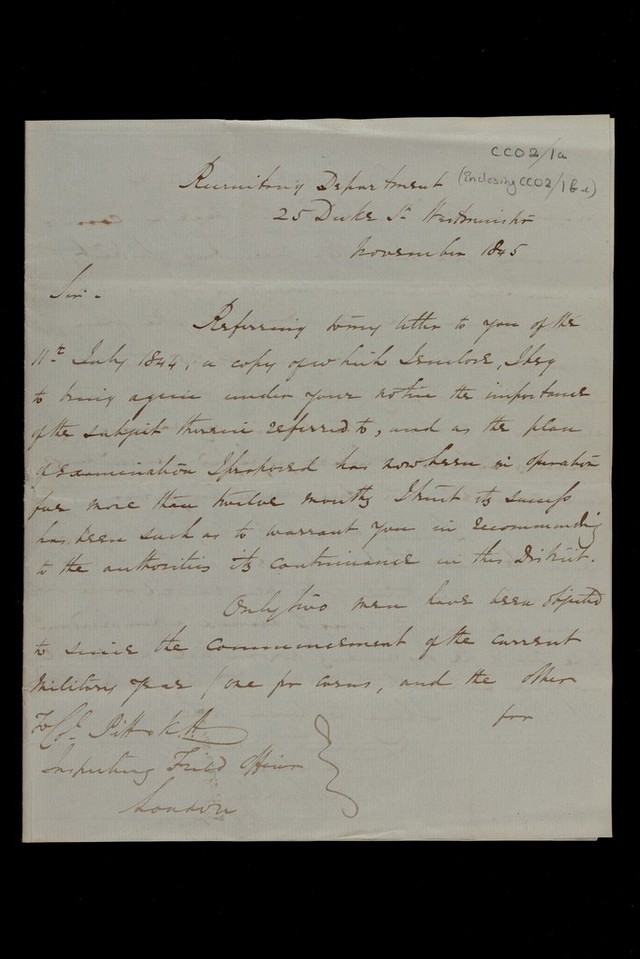 CC02/1a
(Enclosing CC02/1 b-c)
Recruiting Department
25 Duke St. Westminster
November 1845
Sir -
Referring to my letter to you of the
11th July 1844, a copy of which I enclose, I beg
to bring again under your notice the importance
of the subject therein referred to, and as the plan
of examination I proposed has now been in operation
for more than twelve months I trust its success
has been such as to warrant you in recommending
to the authorities its continuance in this District.
Only two men have been objected
to since the commencement of the current
Military year / one for corns, and the other
for
To Col. Pitt K.H.
Inspecting Field Officer
London